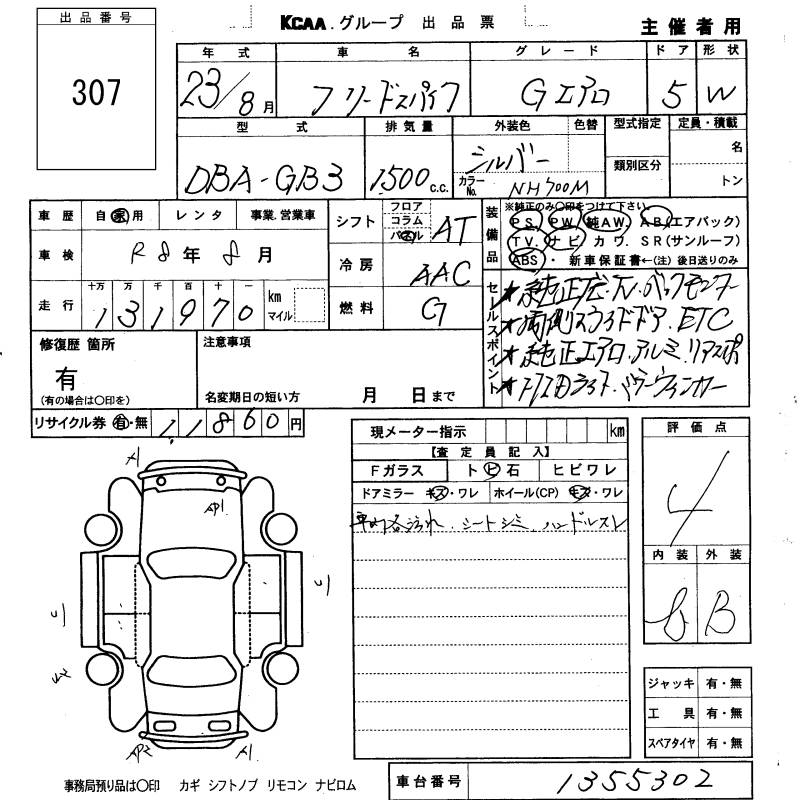 出品番号
307
KCAA.グループ 出品票
主催者用
年式 車名 グレード ドア 形状
23/8月 フリードスパイク Gエアロ 5 W
型式 排気量 外装色 色替 型式指定 定員・積載
DBA-GB3 1500c.c. シルバー
カラーNo. NH700M
類別区分
名
トン
車歴 自家用 レンタ 事業.営業車
車検 R8年8月
走行 十万 万 千 百 十 一
131970 km マイル
シフト フロア コラム パネル AT
冷房 AAC
燃料 G
装備品
※純正のみ〇印をつけて下さい
PS. PW. 純AW. AB.(エアバック)
TV. ナビ カワ. SR(サンルーフ)
ABS ・ 新車保証書←(注)後日送りのみ
セールスポイント
★純正ナビ.TV.バックモニター
★両側スライドドア.ETC
★純正エアロ.アルミ.リアスポ
★HIDライト.パワーウィンカー
修復歴 箇所
有
(有の場合は〇印を)
注意事項
名変期日の短い方 月 日まで
リサイクル券 有・無 11860円
現メーター指示 km
【査定員記入】
Fガラス ト ビ 石 ヒビワレ
ドアミラー キズ・ワレ ホイール(CP) キズ・ワレ
車内各汚れ.シートシミ.ハンドルスレ
評価点
4
内装 外装
B
A1
AP1
AP2
A1
ジャッキ 有・無
工具 有・無
スペアタイヤ 有・無
事務局預り品は〇印 カギ シフトノブ リモコン ナビロム
車台番号 1355302